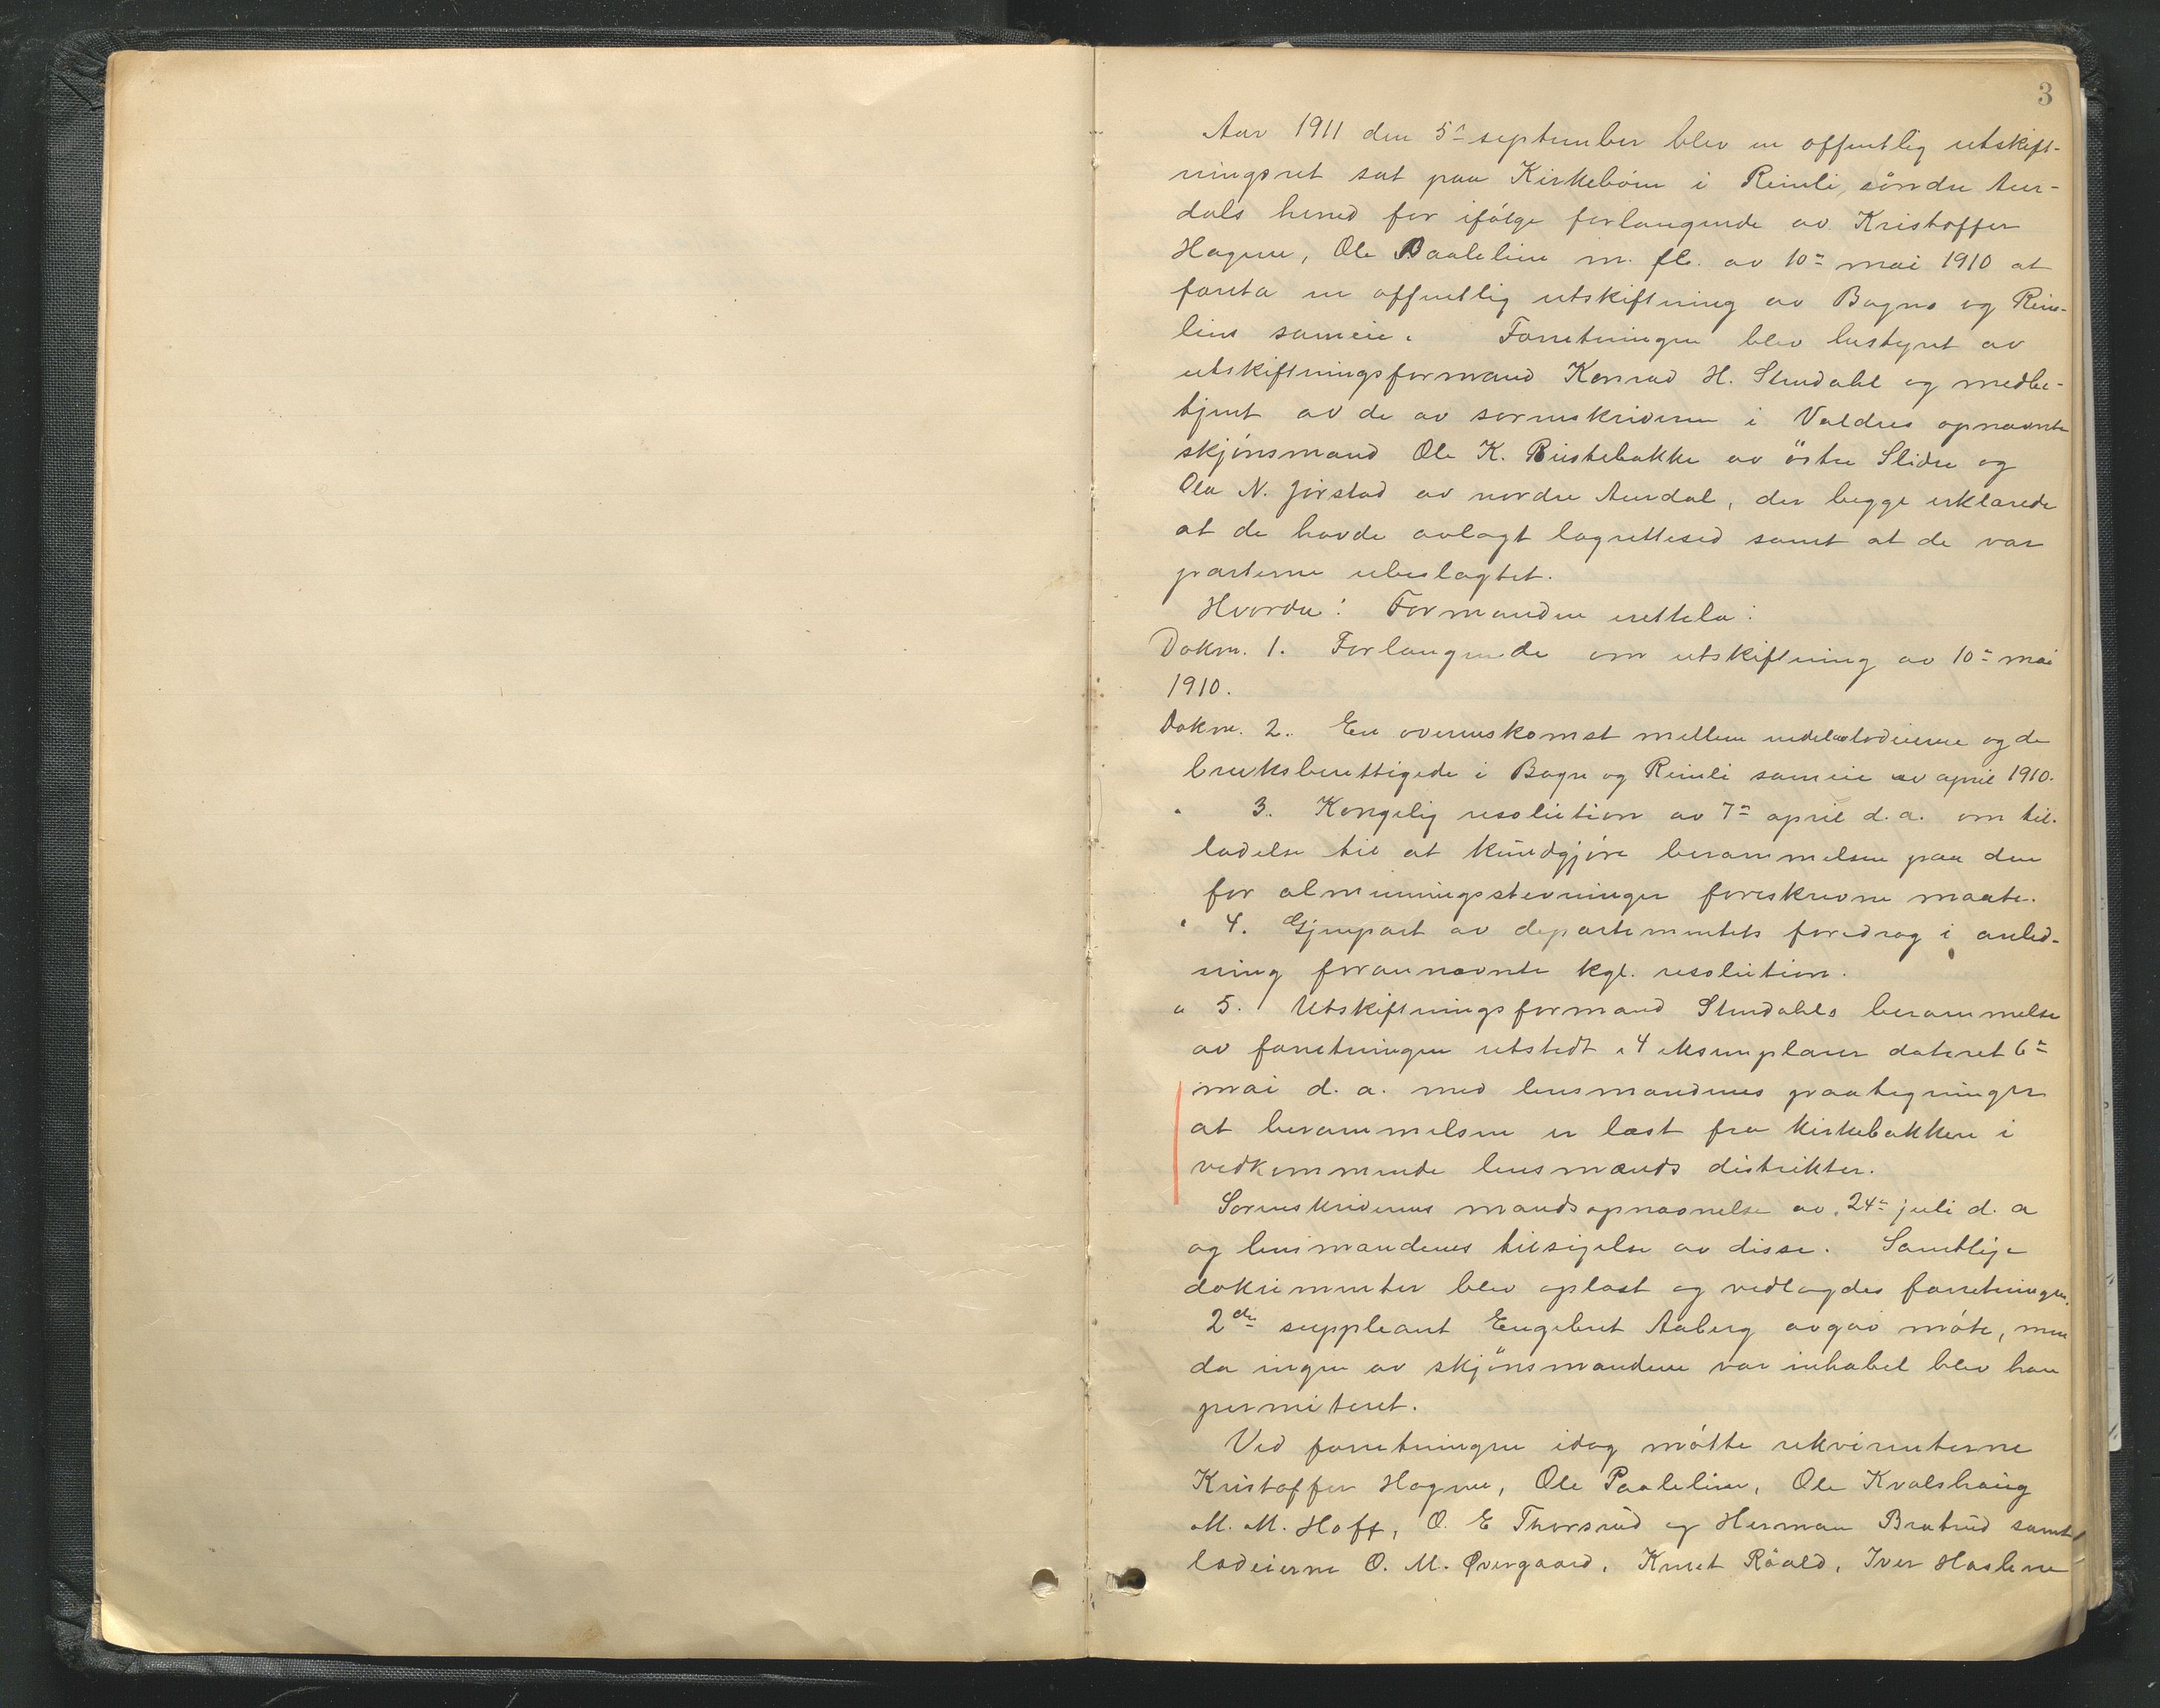 3
Aar 1911 den 5te september blev en offentlig utskift-
ningsret sat paa Kirkebøen i Reinli, søndre Aur-
dals herred for ifølge forlangende av Kristoffer
Hagene, Ole Baalelien m. fl. av 10de mai 1910 at
foreta en offentlig utskiftning av Bagns og Rein-
liens sameie. Forretningen blev bestyret av
utskiftningsformand Konrad H. Stendahl og medbe-
tjent av de av sorenskriveren i Valdres opnævnte
skjønsmænd Ole K. Rustebakke av østre Slidre og
Ola N. Jørstad av nordre Aurdal, der begge erklærede
at de havde avlagt lagrettesed samt at de var
parterne ubeslægtet.
Hvorda: Formanden irettela:
Dokm. 1. Forlangende om utskiftning av 10de mai
1910.
Dokm. 2. En overenskomst mellem lodeierne og de
bruksberettigede i Bagn og Reinli sameie av april 1910.
" 3. Kongelig resolution av 7de april d. a. om til-
ladelse til at kundgjøre berammelsen paa den
for almenningsstevninger foreskrevne maate.
" 4. Gjenpart av departementets foredrag i anled-
ning forannævnte kgl. resolution.
" 5. Utskiftningsformand Stendahls berammelse
av forretningen utstedt i 4 eksemplarer dateret 6te
mai d. a. med lensmændenes paategninger
at berammelsen er læst fra kirkebakken i
vedkommende lensmænds distrikter.
Sorenskriverens mandsopnævnelse av 24de juli d. a
og lensmandenes tilsigelse av disse. Samtlige
dokumenter blev oplæst og vedlagdes forretningen.
2den suppleant Engebret Aaberg avgav møte, men
da ingen av skjønsmændene var inhabil blev han
permiteret.
Ved forretningen idag møtte rekvirenterne
Kristoffer Hagene, Ole Paalelien, Ole Kvalshaug
M. M. Hoff, O. E Thorsrud og Herman Bratrud samt
lodeierne O. M. Øvergaard, Knut Røald, Iver Haslene